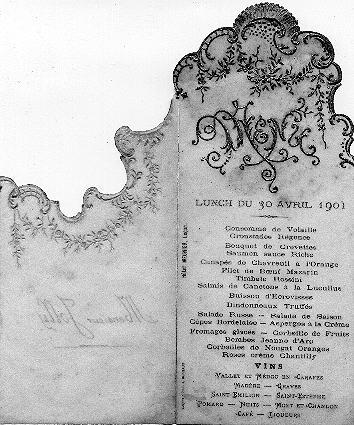 MENU
LUNCH DU 30 AVRIL 1901
Consomme de Volaille
Croustades Régence
Bouquet de Crevettes
Saumon sauce Riche
Canapés de Chevreuil à l'Orange
Filet de Bœuf Mazarin
Timbale Rossini
Salmis de Canetons à la Lucullus
Buisson d'Ecrevisses
Dindonneaux Truffés
Salade Russe — Salade de Saison
Cèpes Bordelaise — Asperges à la Crème
Fromages glacés — Corbeille de Fruits
Bombes Jeanne d'Arc
Corbeilles de Nougat Oranges
Roses crème Chantilly
VINS
VALLET ET MÉDOC EN CARAFES
MADÈRE — GRAVES
SAINT-EMILION — SAINT-ESTÈPHE
POMARD — NUITS — MOET ET CHANDON
CAFÉ — LIQUEURS